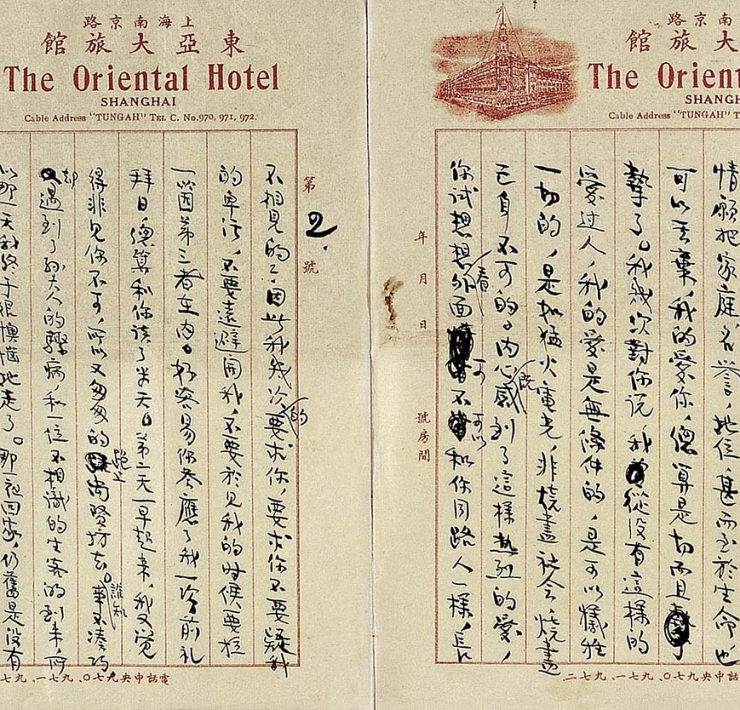 南京路
大旅館
The Orient
SHANGH
Cable Address "TUNGAH" T
情願把家庭、名譽、地位、甚而至於生命也
可以丟棄、我的愛你、總算是切而且
摯了。我幾次對你說、我從沒有這樣的
愛過人、我的愛是無條件的、是可以犧牲
一切的、是如猛火電光、非燒盡社會、燒盡
己身不可的。內心既感到了這樣熱烈的愛、
你試想想看外面可不可以和你同路人一樣、長
年 月 日 號房間
二七九、一七九、
上海南京路
東亞大旅館
The Oriental Hotel
SHANGHAI
Cable Address "TUNGAH" TEL C. No. 970, 971, 972.
第2.號
不相見的、因此我幾次的要求你、要求你不要疑我
的卑污、不要遠避開我、不要於見我的時候要拉
一箇第三者在內。好容易你答應了我一次、前礼
拜日、總算和你談了半天。第二天一早起來、我又覺
得非見你不可、所以又匆匆的跑上尚賢坊去。誰知事不湊巧
却遇到了孫夫人的驟病和一位不相識的生客的到來、所
以那一天我終于很懊惱地走了。那一夜回家、仍舊是沒有
電話中央九七〇、九七一、九七